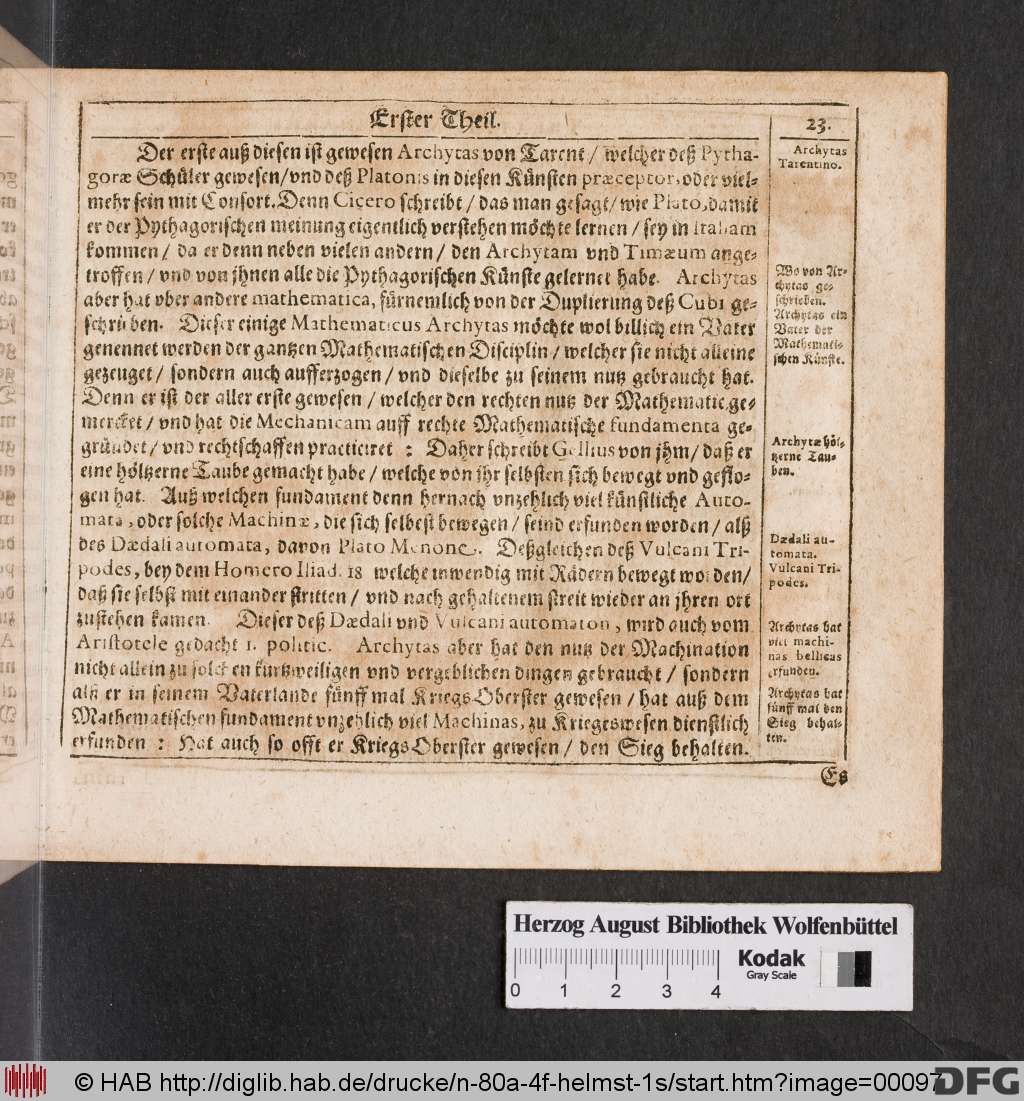 Erster Theil.
23.
Der erste auß diesen ist gewesen Archytas von Tarent / welcher deß Pytha-
goræ Schüler gewesen / vnd deß Platonis in diesen Künsten præceptor, oder viel-
mehr sein mit Consort. Denn Cicero schreibt / das man gesagt / wie Plato, damit
er der Pythagorischen meinung eigentlich verstehen möchte lernen / sey in Italiam
kommen / da er denn neben vielen andern / den Archytam vnd Timæum ange-
troffen / vnd von jhnen alle die Pythagorischen Künste gelernet habe. Archytas
aber hat vber andere mathematica, fürnemlich von der Duplierung deß Cubi ge-
schrieben. Dieser einige Mathematicus Archytas möchte wol billich ein Vater
genennet werden der gantzen Mathematischen Disciplin / welcher sie nicht alleine
gezeuget / sondern auch aufferzogen / vnd dieselbe zu seinem nutz gebraucht hat.
Denn er ist der aller erste gewesen / welcher den rechten nutz der Mathematic, ge-
mercket / vnd hat die Mechanicam auff rechte Mathematische fundamenta ge-
gründet / vnd rechtschaffen practiciret : Daher schreibt Gellius von jhm / daß er
eine höltzerne Taube gemacht habe / welche von jhr selbsten sich bewegt vnd geflo-
gen hat. Auß welchen fundament denn hernach vnzehlich viel künstliche Auto-
mata, oder solche Machinæ, die sich selbest bewegen / seind erfunden worden / alß
des Dædali automata, davon Plato Menone. Deßgleichen deß Vulcani Tri-
podes, bey dem Homero Iliad. 18 welche inwendig mit Rädern bewegt worden /
daß sie selbst mit einander stritten / vnd nach gehaltenem streit wieder an jhren ort
zustehen kamen. Dieser deß Dædali vnd Vulcani automaton, wird auch vom
Aristotele gedacht 1. politic. Archytas aber hat den nutz der Machination
nicht allein zu solchen kurtzweiligen vnd vergeblichen dingen gebraucht / sondern
alß er in seinem Vaterlande fünff mal KriegsOberster gewesen / hat auß dem
Mathematischen fundament vnzehlich viel Machinas, zu Kriegeswesen dienstlich
erfunden : Hat auch so offt er KriegsOberster gewesen / den Sieg behalten.
Archytas
Tarentino.
Wo von Ar-
chytas ge-
schrieben.
Archytas ein
Vater der
Mathemati-
schen Künste.
Archytæ höl-
tzerne Tau-
ben.
Dædali au-
tomata.
Vulcani Tri-
podes.
Archytas hat
viel machi-
nas bellicas
erfunden.
Archytas hat
fünff mal den
Sieg behal-
ten.
Es
Herzog August Bibliothek Wolfenbüttel
Kodak
Gray Scale
0 1 2 3 4
© HAB http://diglib.hab.de/drucke/n-80a-4f-helmst-1s/start.htm?image=00097
DFG